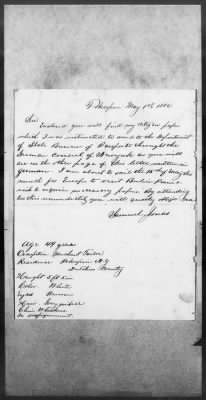 Pokeepsie May 1st 1882
Sir
Enclosed you will find my Citizen paper
which I was instructed to send to the Department
of State Bureau of Passports through the
German Consul of Newyork as you will
see on the other page of this letter written in
german. I am about to sail the 13th of May this
month for Europe to visit Berlin
wish to necessary papers. By attending
to this immediately you will greatly oblige
Samuel Jonas
Age 49 years
Occupation Merchant Tailor
Residence Pokeepsie N.Y.
Dutchess County
Height 5 ft
Color White
Eyes Brown
Hair
Chin Whiskers
no